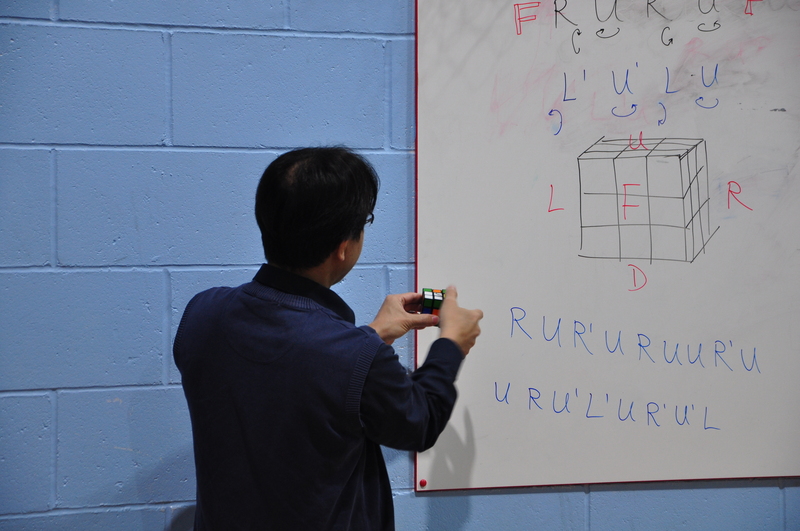 F R U R U
L' U' L U
U
L F R
D
R U R' U R U U R' U
U R U' L' U R' U' L